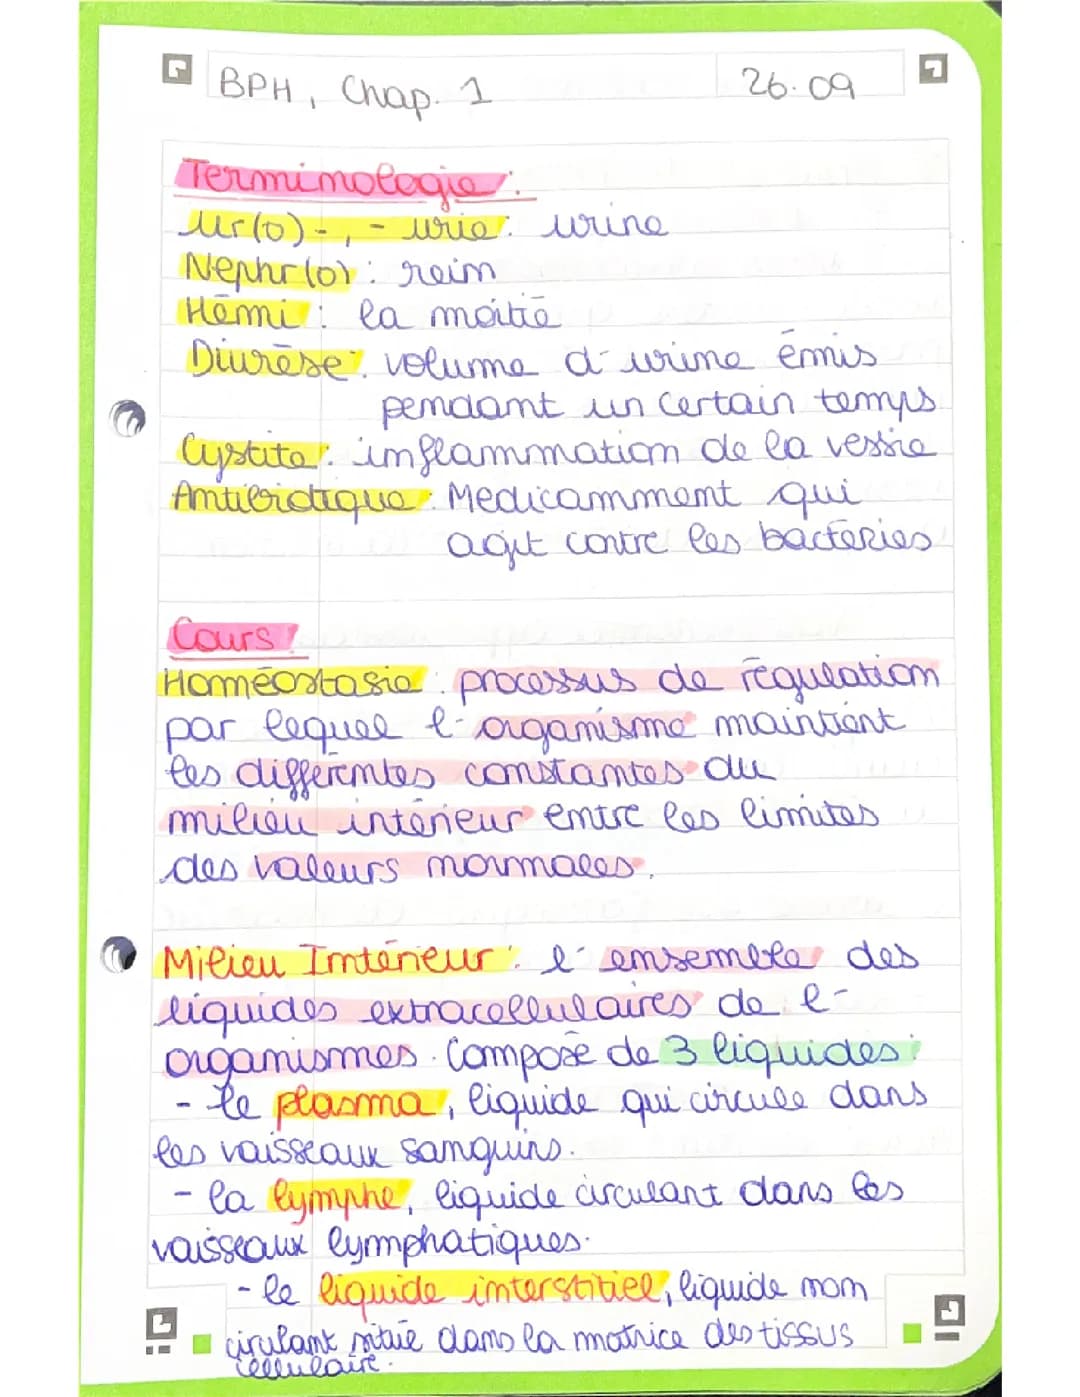 BPH, Chap. 1
26.09
Terminologie :
Ur(o)-, -urie : urine
Néphr(o) : rein
Hémi : la moitié
Diurèse : volume d'urine émis
pendant un certain temps
Cystite : inflammation de la vessie
Antibiotique : Medicamment qui
agit contre les bactéries
Cours :
Homéostasie : processus de régulation
par lequel l'organisme maintient
les différentes constantes du
milieu intérieur entre les limites
des valeurs normales.
Milieu Intérieur : l'ensemble des
liquides extracellulaires de l'
organismes. Composé de 3 liquides :
- le plasma, liquide qui circule dans
les vaisseaux sanguins.
- la lymphe, liquide circulant dans les
vaisseaux lymphatiques.
- le liquide interstitiel, liquide non
cirulant situé dans la matrice des tissus
cellulaire.